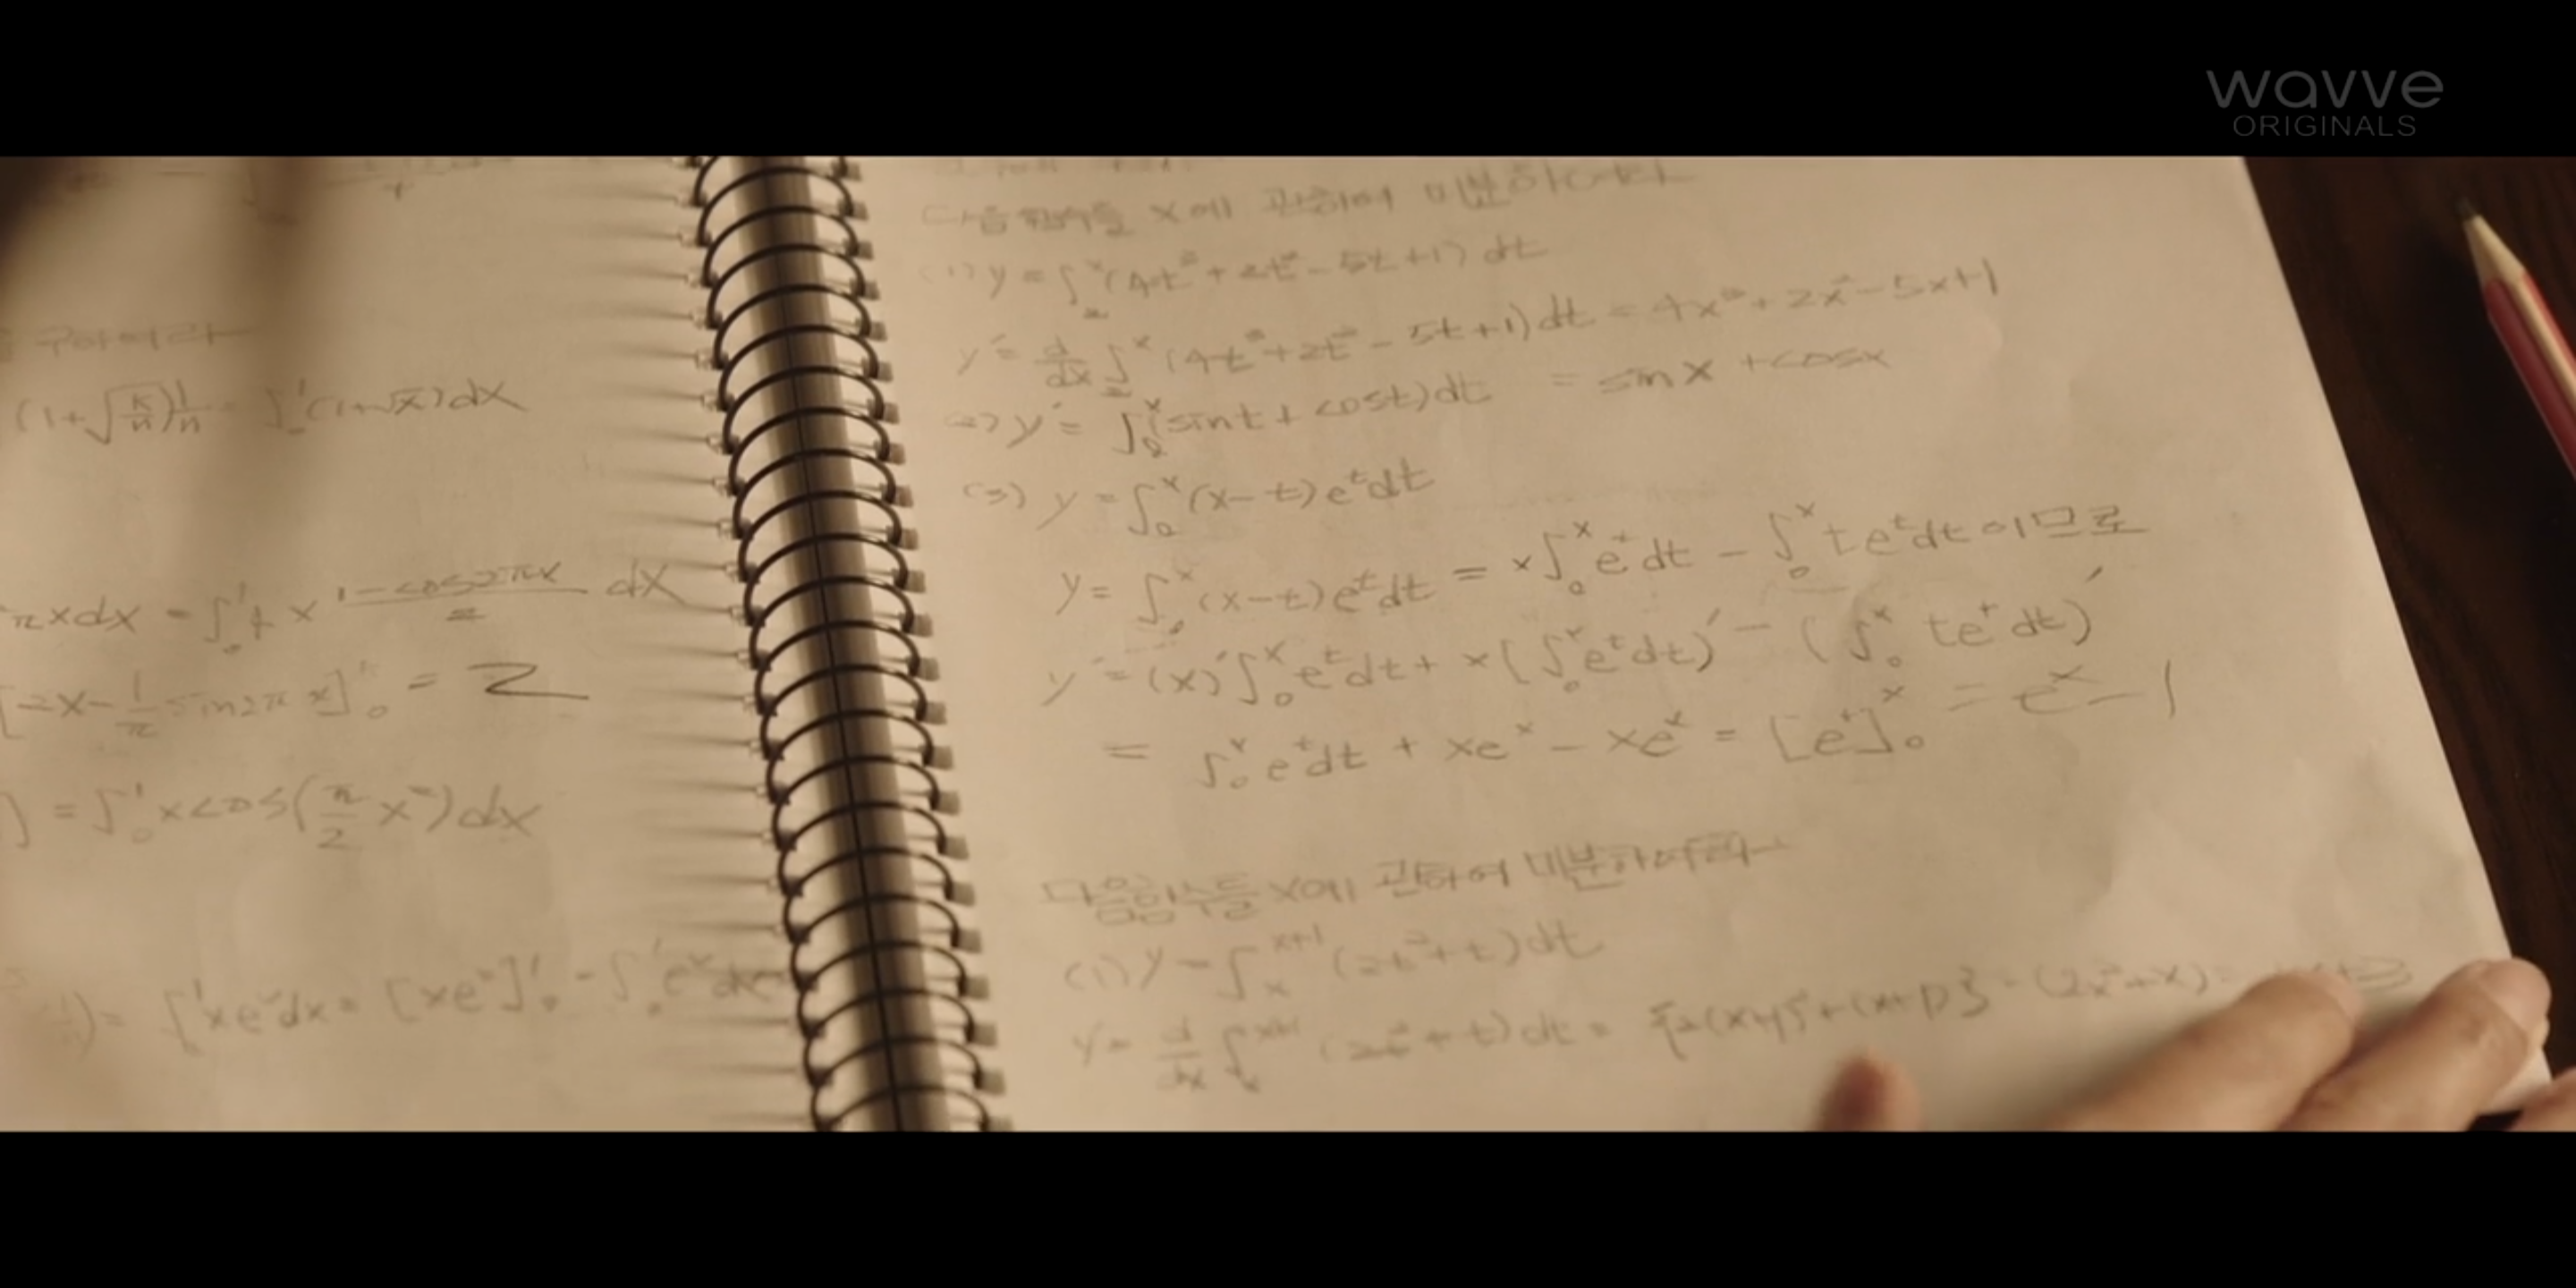 wavve
ORIGINALS
구하여라
(1+√(k/n))1/n = ∫₀¹(1+√x)dx
πxdx = ∫₀¹ 4 x (1-cos2πx)/2 dx
[2x-1/π sin2πx]₀¹ = 2
] = ∫₀¹ xcos(π/2 x²)dx
)= ∫₀¹xeˣdx = [xeˣ]₀¹ - ∫₀¹eˣdx
다음 함수를 x에 관하여 미분하여라
(1) y = ∫₂ˣ(4t³+2t²-5t+1)dt
y′= d/dx ∫₂ˣ(4t³+2t²-5t+1)dt = 4x³+2x²-5x+1
(2) y′= ∫₀ˣ(sint+cost)dt = sinx+cosx
(3) y = ∫₀ˣ(x-t)eᵗdt
y= ∫₀ˣ(x-t)eᵗdt = x∫₀ˣeᵗdt - ∫₀ˣteᵗdt이므로
y′=(x)′∫₀ˣeᵗdt+x(∫₀ˣeᵗdt)′-(∫₀ˣteᵗdt)′
= ∫₀ˣeᵗdt+xeˣ-xeˣ = [eᵗ]₀ˣ = eˣ-1
다음함수를 x에 관하여 미분하여라
(1) y=∫ₓˣ⁺¹(2t²+t)dt
y′= d/dx ∫ₓˣ⁺¹(2t²+t)dt = {2(x+1)²+(x+1)}-(2x²+x)=